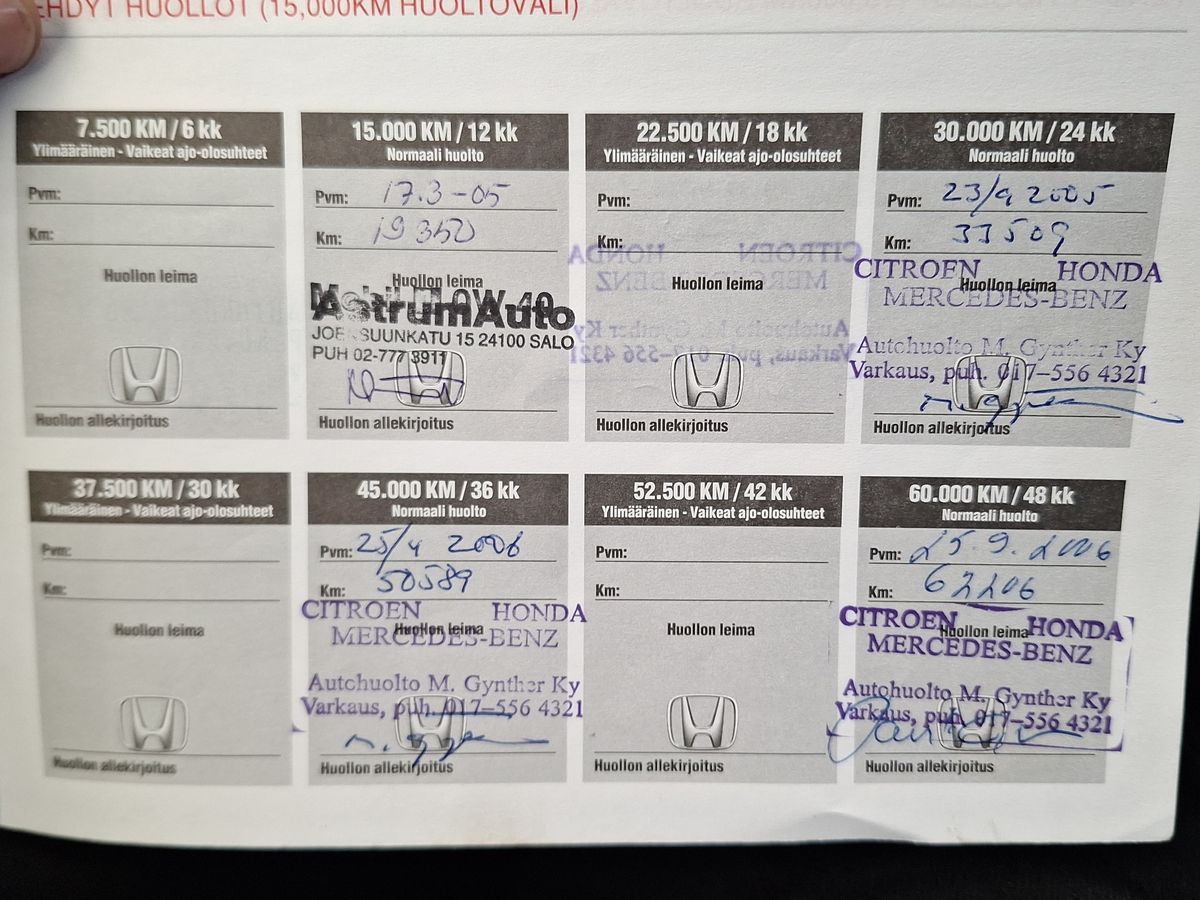 EHDYT HUOLLOT (15,000KM HUOLTOVÄLI)
7.500 KM / 6 kk
Ylimääräinen - Vaikeat ajo-olosuhteet
Pvm:
Km:
Huollon leima
Huollon allekirjoitus
15.000 KM / 12 kk
Normaali huolto
Pvm: 17.3-05
Km: 19350
Huollon leima
AstrumAuto
JOENSUUNKATU 15 24100 SALO
PUH 02-777 3911
Huollon allekirjoitus
22.500 KM / 18 kk
Ylimääräinen - Vaikeat ajo-olosuhteet
Pvm:
Km:
CITROEN HONDA
MERCEDES-BENZ
Huollon leima
Autohuolto M. Gynther Ky
Varkaus, puh. 017-556 4321
Huollon allekirjoitus
30.000 KM / 24 kk
Normaali huolto
Pvm: 23/9 2005
Km: 33509
CITROEN HONDA
Huollon leima
MERCEDES-BENZ
Autohuolto M. Gynther Ky
Varkaus, puh. 017-556 4321
Huollon allekirjoitus
37.500 KM / 30 kk
Ylimääräinen - Vaikeat ajo-olosuhteet
Pvm:
Km:
Huollon leima
Huollon allekirjoitus
45.000 KM / 36 kk
Normaali huolto
Pvm: 25/4 2006
Km: 50589
CITROEN HONDA
Huollon leima
MERCEDES-BENZ
Autohuolto M. Gynther Ky
Varkaus, puh. 017-556 4321
Huollon allekirjoitus
52.500 KM / 42 kk
Ylimääräinen - Vaikeat ajo-olosuhteet
Pvm:
Km:
Huollon leima
Huollon allekirjoitus
60.000 KM / 48 kk
Normaali huolto
Pvm: 25.9.2006
Km: 62206
CITROEN HONDA
Huollon leima
MERCEDES-BENZ
Autohuolto M. Gynther Ky
Varkaus, puh. 017-556 4321
Huollon allekirjoitus